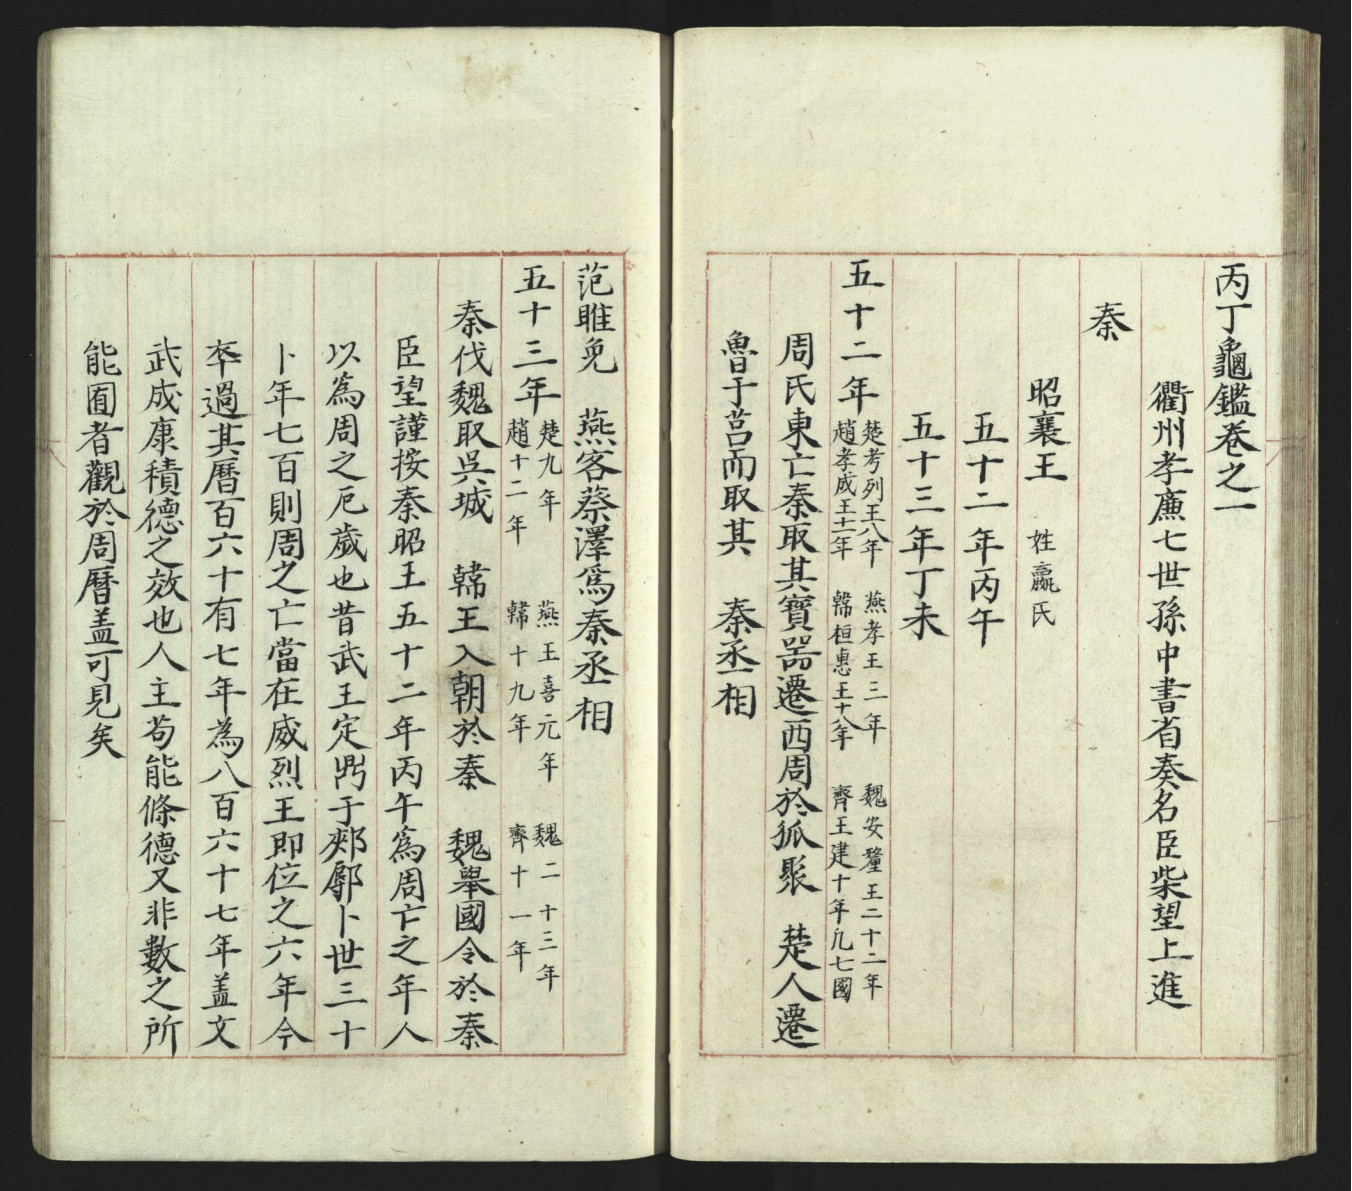 丙丁龜鑑卷之一
衢州孝廉七世孫中書省奏名臣柴望上進
秦
昭襄王 姓嬴氏
五十二年丙午
五十三年丁未
五十二年 楚考列王八年 燕孝王三年 魏安釐王二十二年 趙孝成王十一年 韓桓惠王十八年 齊王建十年凡七國
周氏東亡秦取其寶器遷西周於狐聚 楚人遷
魯于莒而取其 秦丞相
范睢免 燕客蔡澤為秦丞相
五十三年 楚九年 燕王喜元年 魏二十三年 趙十二年 韓十九年 齊十一年
秦伐魏取吳城 韓王入朝於秦 魏舉國令於秦
臣望謹按秦昭王五十二年丙午為周亡之年人
以為周之厄歲也昔武王定鼎于郟鄏卜世三十
卜年七百則周之亡當在威烈王即位之六年今
卒過其曆百六十有七年為八百六十七年盖文
武成康積德之效也人主苟能條德又非數之所
能囿者觀於周曆盖可見矣